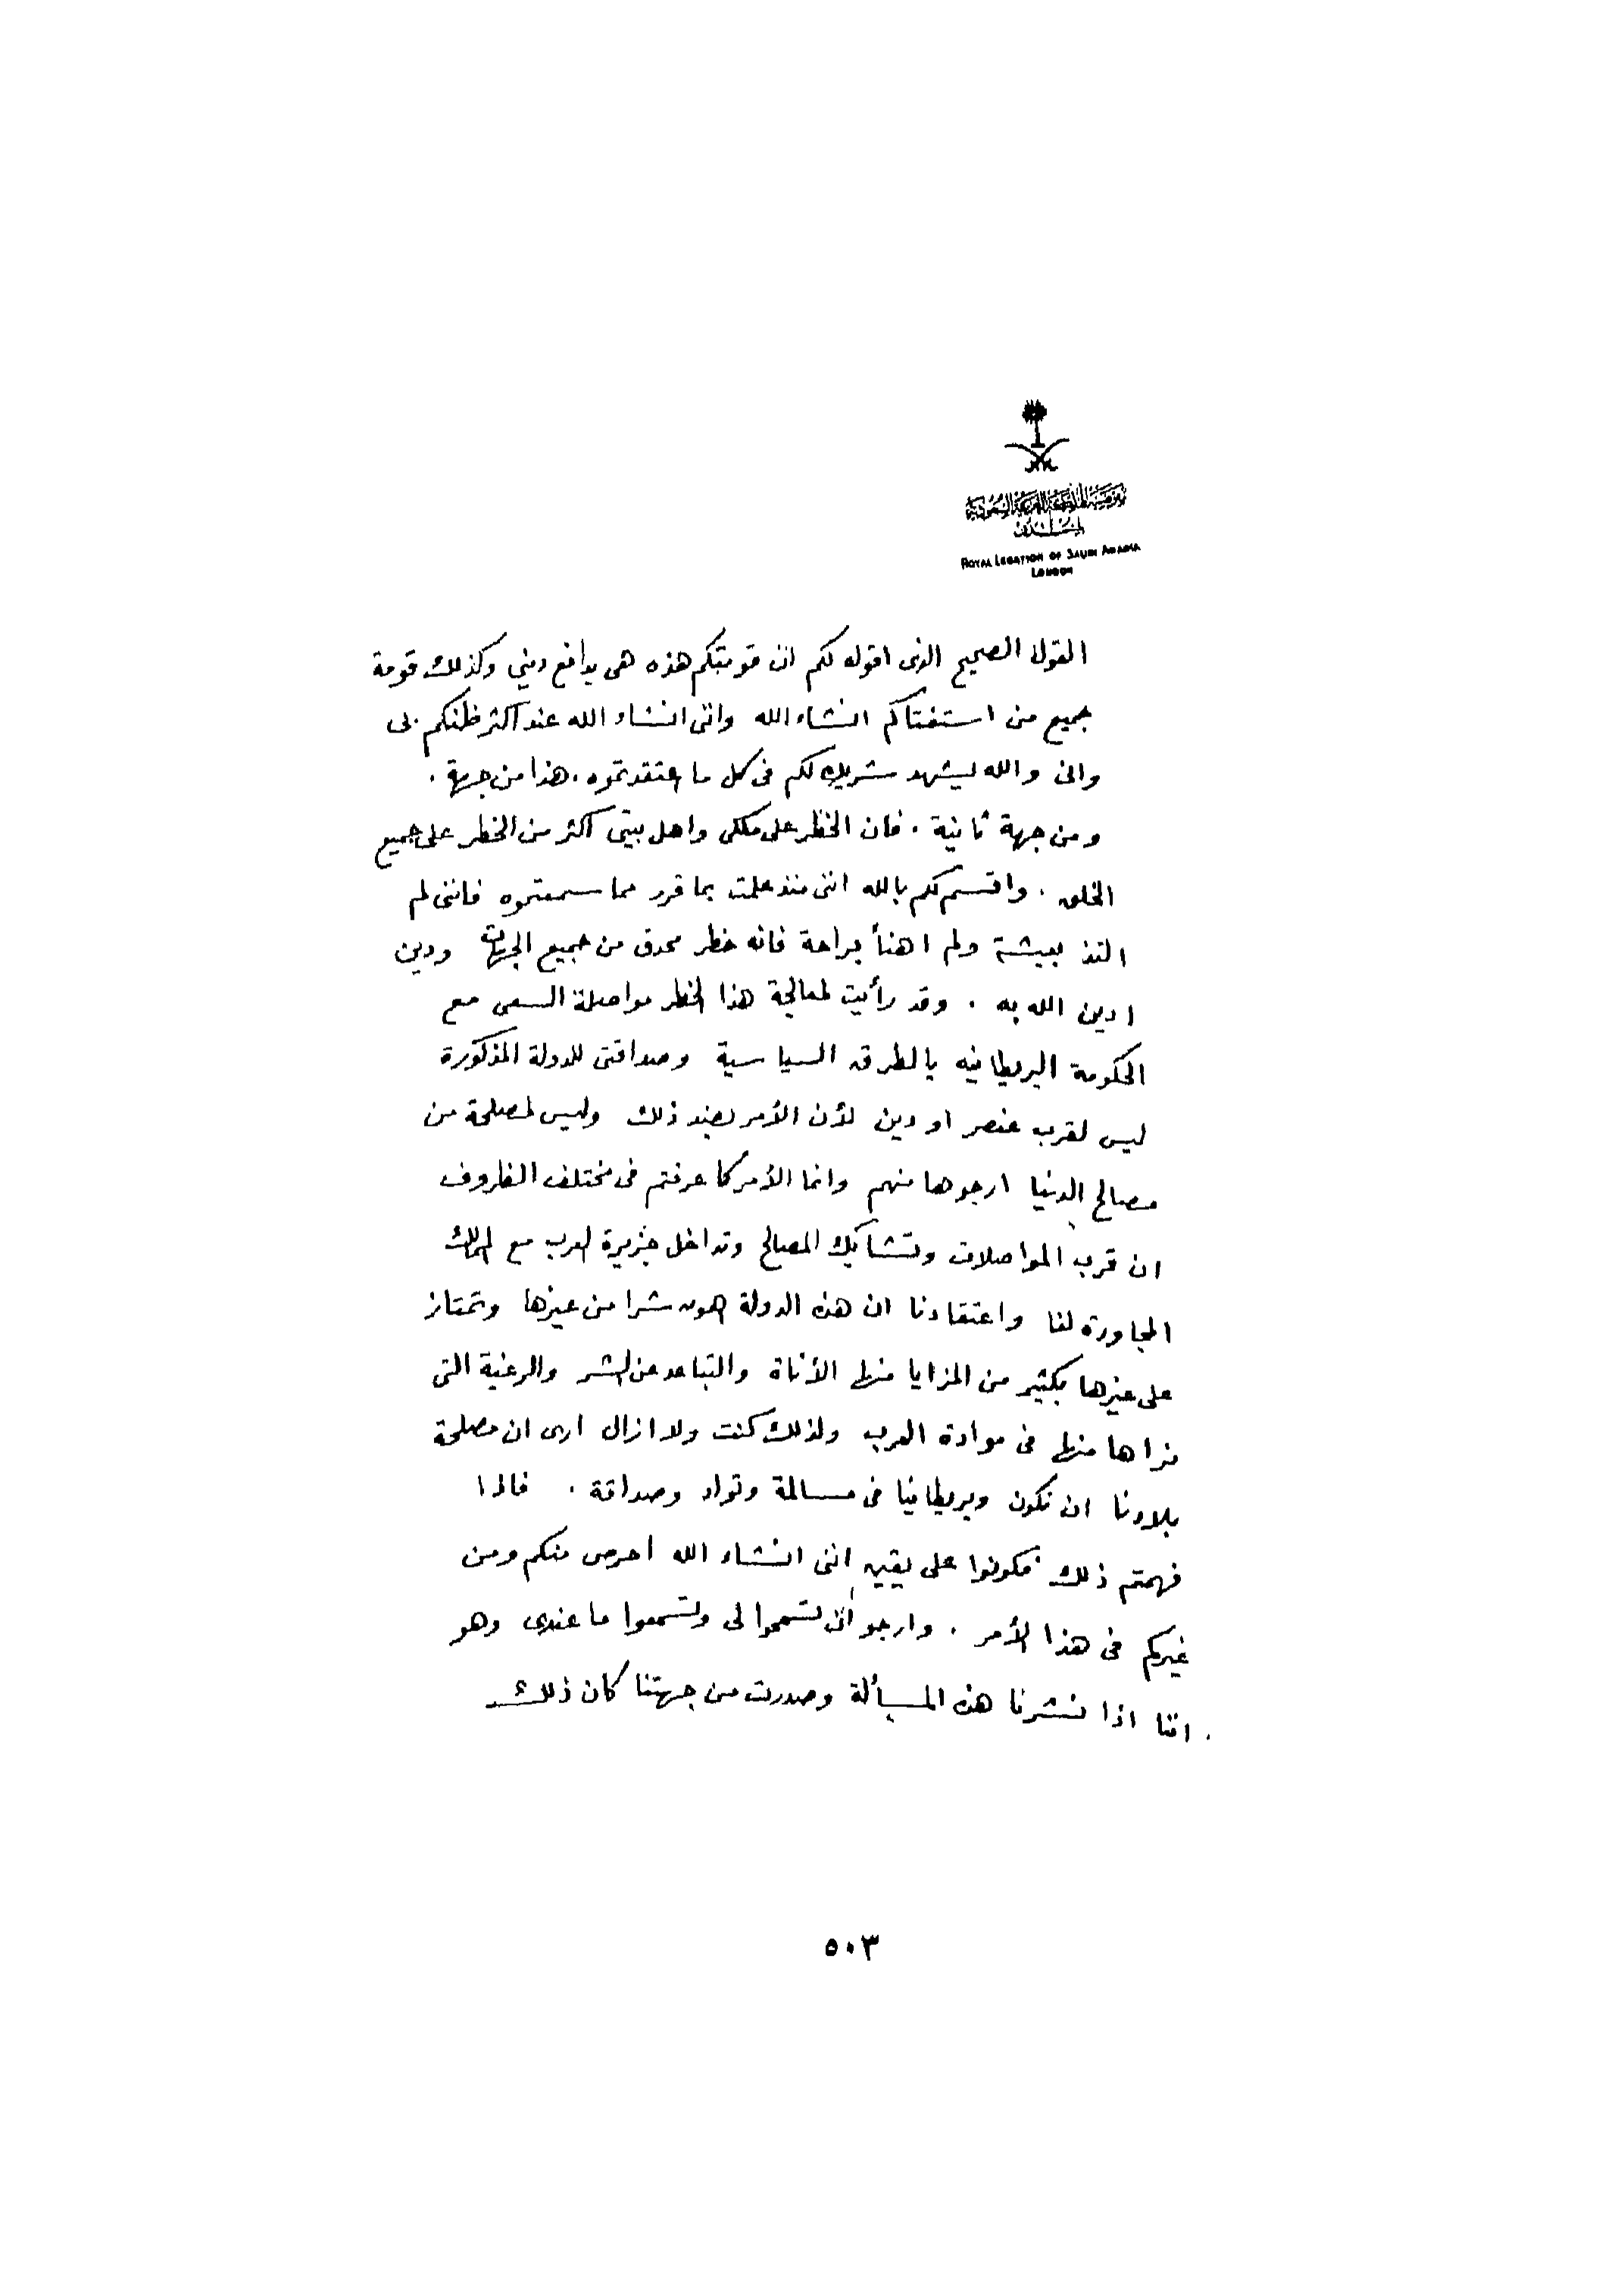 مفوضية المملكة العربية السعودية
بلندن
ROYAL LEGATION OF SAUDI ARABIA
LONDON
القول الصحيح الذى اقوله لكم ان قومتكم هذه هى بدافع ديني وكذلك قومة
جميع من استفتاكم انشاء الله وانى انشاء الله عند اكثر ظنكم بى
وانى والله ليشهد شريك لكم فى كل ما اعتقدتموه . هذا من جهة .
ومن جهة ثانية . فان الخطر على ملكى واهل بيتى اكثر من الخطر على جميع
الخلق . واقسم لكم بالله اننى منذ علمت بما قرر مما سمعتموه فاننى لم
التذ بعيشة ولم اهنأ براحة فانه خطر محدق من جميع الجهات ودين
ادين الله به . وقد رأيت لمعالجة هذا الخطر مواصلة السعى مع
الحكومة البريطانيه بالطرق السياسية وصداقتى للدولة المذكورة
ليس لقرب عنصر او دين لأن الأمر بضد ذلك وليس لمصلحة من
مصالح الدنيا ارجوها منهم وانما الأمر كما عرفتم فى مختلف الظروف
ان قرب المواصلات وتشابك المصالح وتداخل جزيرة العرب مع الممالك
المجاورة لنا واعتقادنا ان هذه الدولة اهون شرا من غيرها وتمتاز
على غيرها بكثير من المزايا منها الأناة والتباعد عن الشر والرغبة التى
نراها منها فى موادة العرب ولذلك كنت ولا ازال ارى ان مصلحة
بلادنا ان تكون وبريطانيا فى مسالمة وتواد وصداقة . فاذا
فهمتم ذلك فكونوا على يقين اننى انشاء الله احرص منكم ومن
غيركم فى هذا الأمر . وارجو أن تسمحوا لى وتسمعوا ما عندى وهو
اننا اذا نشرنا هذه المسألة وصدرت من جهتنا كان ذلك
٥٠٣